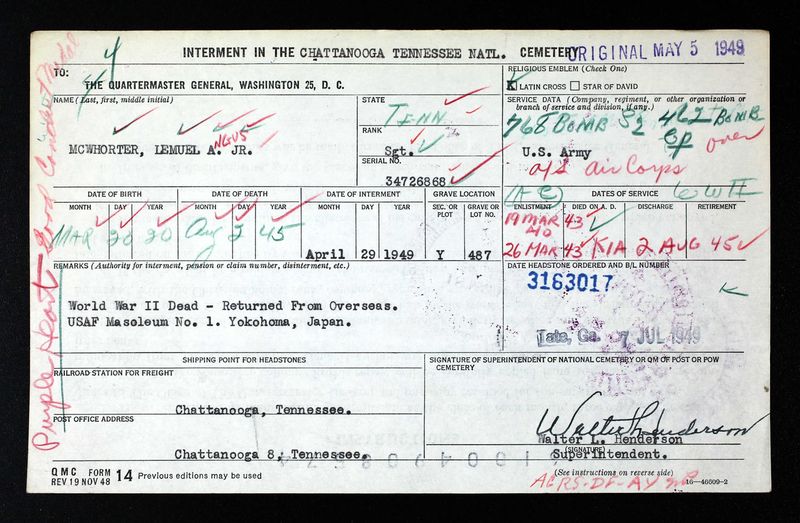 INTERMENT IN THE CHATTANOOGA TENNESSEE NATL. CEMETERY
ORIGINAL MAY 5 1949
4
TO:
THE QUARTERMASTER GENERAL, WASHINGTON 25, D. C.
RELIGIOUS EMBLEM (Check One)
X LATIN CROSS STAR OF DAVID
NAME (Last, first, middle initial)
MCWHORTER, LEMUEL A. JR.
NGUS
STATE
TENN
RANK
Sgt.
SERIAL NO.
34726868
SERVICE DATA (Company, regiment, or other organization or branch of service and division, if any.)
768 BOMB Sq 462 BOMB
GP over
U.S. Army
a/s air Corps
(AC) WWII
DATE OF BIRTH
MONTH DAY YEAR
MAR 20 20
DATE OF DEATH
MONTH DAY YEAR
Aug 2 45
DATE OF INTERMENT
MONTH DAY YEAR
April 29 1949
GRAVE LOCATION
SEC. OR PLOT GRAVE OR LOT NO.
Y 487
DATES OF SERVICE
ENLISTMENT DIED ON A. D. DISCHARGE RETIREMENT
19 MAR 43
26 MAR 43 KIA 2 AUG 45
REMARKS (Authority for interment, pension or claim number, disinterment, etc.)
World War II Dead - Returned From Overseas.
USAF Masoleum No. 1. Yokohoma, Japan.
DATE HEADSTONE ORDERED AND B/L NUMBER
3163017
Tate, Ga. 7 JUL 1949
SHIPPING POINT FOR HEADSTONES
RAILROAD STATION FOR FREIGHT
Chattanooga, Tennessee.
POST OFFICE ADDRESS
Chattanooga 8, Tennessee.
SIGNATURE OF SUPERINTENDENT OF NATIONAL CEMETERY OR QM OF POST OR POW CEMETERY
Walter L Henderson
Walter L. Henderson
(SIGNATURE)
Superintendent.
(See instructions on reverse side)
QMC FORM 14 Previous editions may be used
REV 19 NOV 48
16-46609-2
Purple Heart - Good Conduct Medal